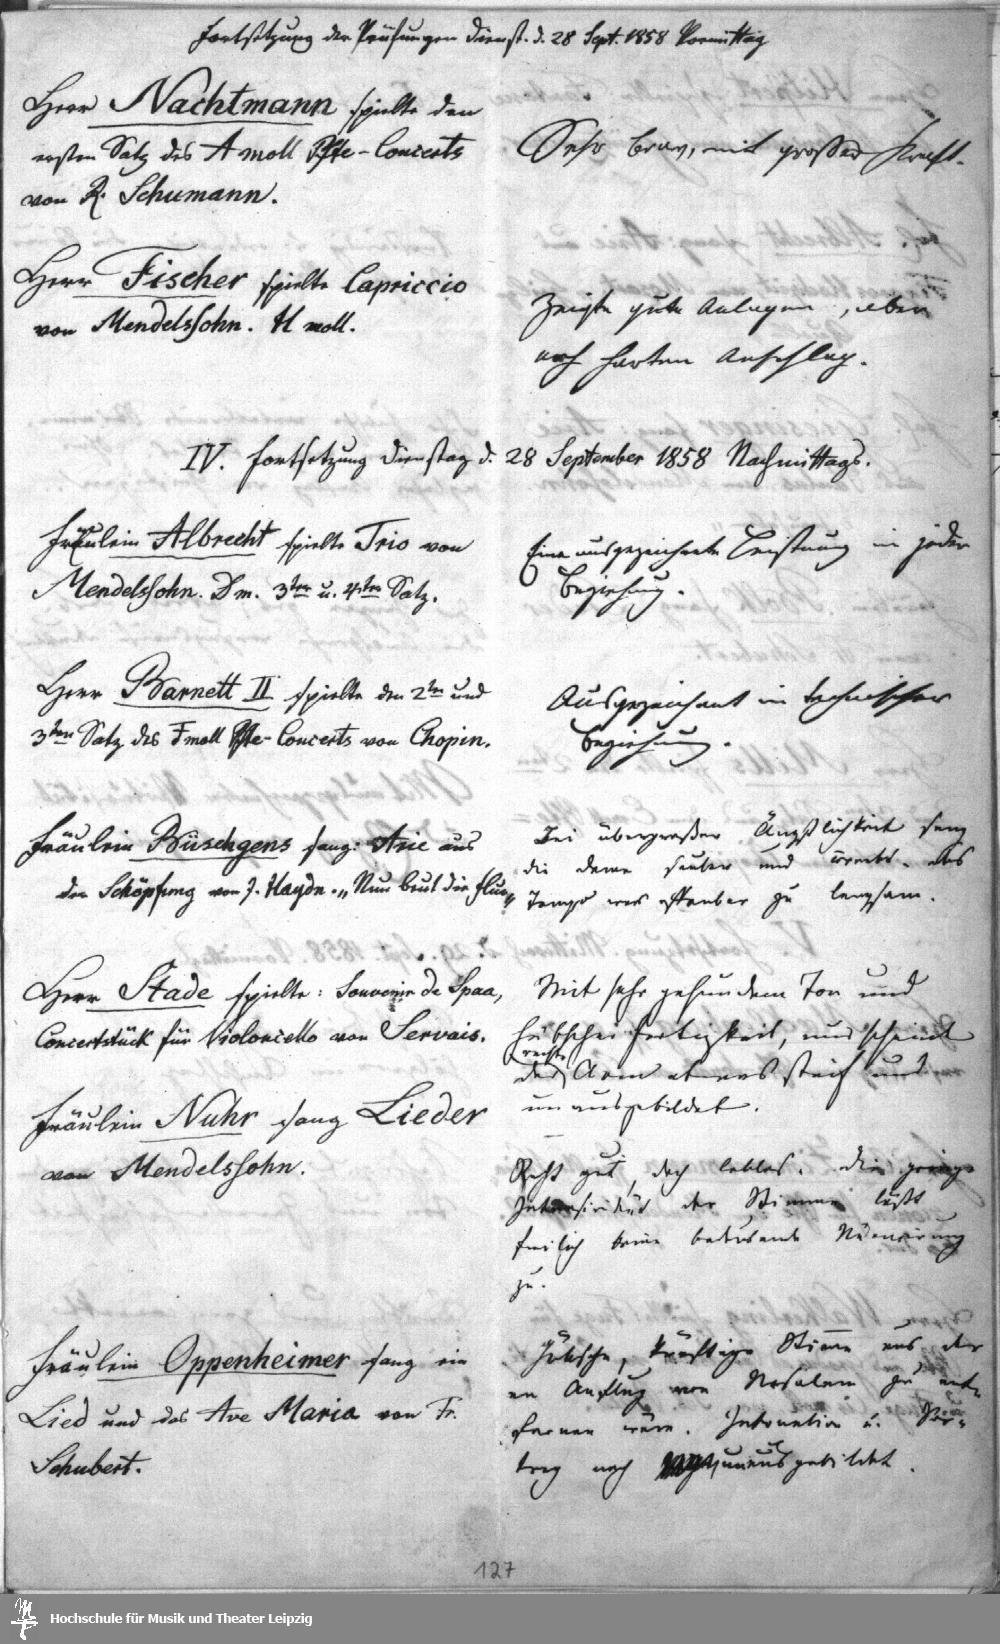 Fortsetzung der Prüfungen Dienst. d. 28 Sept. 1858 Vormittag
Herr Nachtmann spielte den
ersten Satz des A moll Pfte-Concerts
von R. Schumann.
Sehr brav, mit großer Kraft.
Herr Fischer spielte Capriccio
von Mendelssohn. H moll.
Zeigte gute Anlagen, aber
noch harten Anschlag.
IV. Fortsetzung Dienstag d. 28 September 1858 Nachmittags.
Fräulein Albrecht spielte Trio von
Mendelssohn. D m. 3ten u. 4ten Satz.
Eine ausgezeichnete Leistung in jeder
Beziehung.
Herr Barnett II spielte den 2ten und
3ten Satz des F moll Pfte-Concerts von Chopin.
Ausgezeichnet in technischer
Beziehung.
Fräulein Büschgens sang: Arie aus
der Schöpfung von J. Haydn. „Nun beut die Flur"
Bei übergroßer Ängstlichkeit sang
die Dame sauber und correct. das
Tempo war offenbar zu langsam.
Herr Stade spielte: Souvenir de Spaa,
Concertstück für Violoncello von Servais.
Mit sehr gesundem Ton und
hübscher Fertigkeit, nur scheint
der rechte Arm etwas steif und
unausgebildet.
Fräulein Nuhr sang Lieder
von Mendelssohn.
Recht gut, doch leblos. die geringe
Intensivität der Stimme läßt
freilich keine bedeutende Nüancirung
zu.
Fräulein Oppenheimer sang ein
Lied und das Ave Maria von Fr.
Schubert.
Hübsche, kräftige Stimme aus der
ein Anflug von Nasalem zu ent-
fernen wäre. Intonation u. Vor-
trag noch unausgebildet.
127
Hochschule für Musik und Theater Leipzig